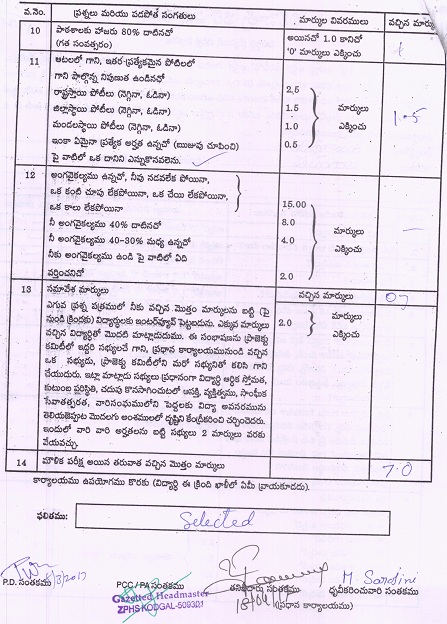 వ.నెం. ప్రశ్నలు మరియు పదపోత సంగతులు మార్కుల వివరములు వచ్చిన మార్కు
10 పాఠశాలకు హాజరు 80% దాటినచో అయినచో 1.0 కానిచో 1
(గత సంవత్సరం) '0' మార్కులు ఎక్కించు
11 ఆటలలో గాని, ఇతర ప్రత్యేకమైన పోటిలలో
గాని పాల్గొన్న నిపుణత ఉండినచో
రాష్ట్రస్తాయి పోటీలు (నెగ్గినా, ఓడినా) 2.5
జిల్లాస్థాయి పోటీలు (నెగ్గినా, ఓడినా) 1.5 మార్కులు 1.5
మండలస్థాయి పోటీలు (నెగ్గినా, ఓడినా) 1.0 ఎక్కించు
ఇంకా ఏమైనా ప్రత్యేక అర్హత ఉన్నచో (ఋజువు చూపించి) 0.5
పై వాటిలో ఒక దానిని ఎన్నుకొనవలెను.
12 అంగవైకల్యము ఉన్నచో, నీవు నడవలేక పోయినా,
ఒక కంటి చూపు లేకపోయినా, ఒక చేయి లేకపోయినా,
ఒక కాలు లేకపోయినా 15.00
నీ అంగవైకల్యము 40% దాటినచో 8.0 మార్కులు
నీ అంగవైకల్యము 40-30% మధ్య ఉన్నచో 4.0 ఎక్కించు
నీకు అంగవైకల్యము ఉండి పై వాటిలో ఏది
వర్తించనిచో 2.0
13 సమావేశ మార్కులు వచ్చిన మార్కులు
ఎగువ ప్రశ్న పత్రములో నీకు వచ్చిన మొత్తం మార్కులను బట్టి (పై 2.0 మార్కులు
నుండి క్రిందకు) విద్యార్థులకు ఇంటర్వ్యూవ్ పెట్టబడును. ఎక్కువ మార్కులు ఎక్కించు
వచ్చిన విద్యార్థితో మొదటి మాట్లాడుదుము. ఈ సంభాషణను ప్రాజెక్టు
కమిటీలో ఇద్దరి సభ్యులచే గాని, ప్రధాన కార్యాలయమునుండి వచ్చిన
ఒక సభ్యుడు, ప్రాజెక్టు కమిటీలోని మరో సభ్యునితో కలిసి గాని
చేయుదురు. ఇట్లా మాట్లాడు సభ్యులు ప్రధానంగా విద్యార్థి ఆర్థిక స్తోమత,
కుటుంబ ప్రరిస్థితి, చదువు కొనసాగించుటలో ఆసక్తి, వ్యక్తిత్వము, సాంఘీక
సేవాతత్పరత, వారిసంఘములోని పెద్దలకు విద్యా అవసరమును
తెలియజెప్పుట మొదలగు అంశములలో దృష్టిని కేంద్రీకరించి చర్చించెదరు.
ఇందులో వారి వారి అర్హతలను బట్టి సభ్యులు 2 మార్కులు వరకు
వేయవచ్చు.
14 మౌళిక పరీక్ష అయిన తరువాత వచ్చిన మొత్తం మార్కులు 7.0
కార్యాలయము ఉపయోగము కొరకు (విద్యార్థి ఈ క్రింది ఖాళీలో ఏమీ వ్రాయకూడదు).
ఫలితము: Selected
P.D. సంతకము PCC / PA సంతకము తనిఖీదారు సంతకము M Sarojini
Gazetted Headmaster (ప్రధాన కార్యాలయము) ధృవీకరించువారి సంతకము
ZPHS KODGAL-509321